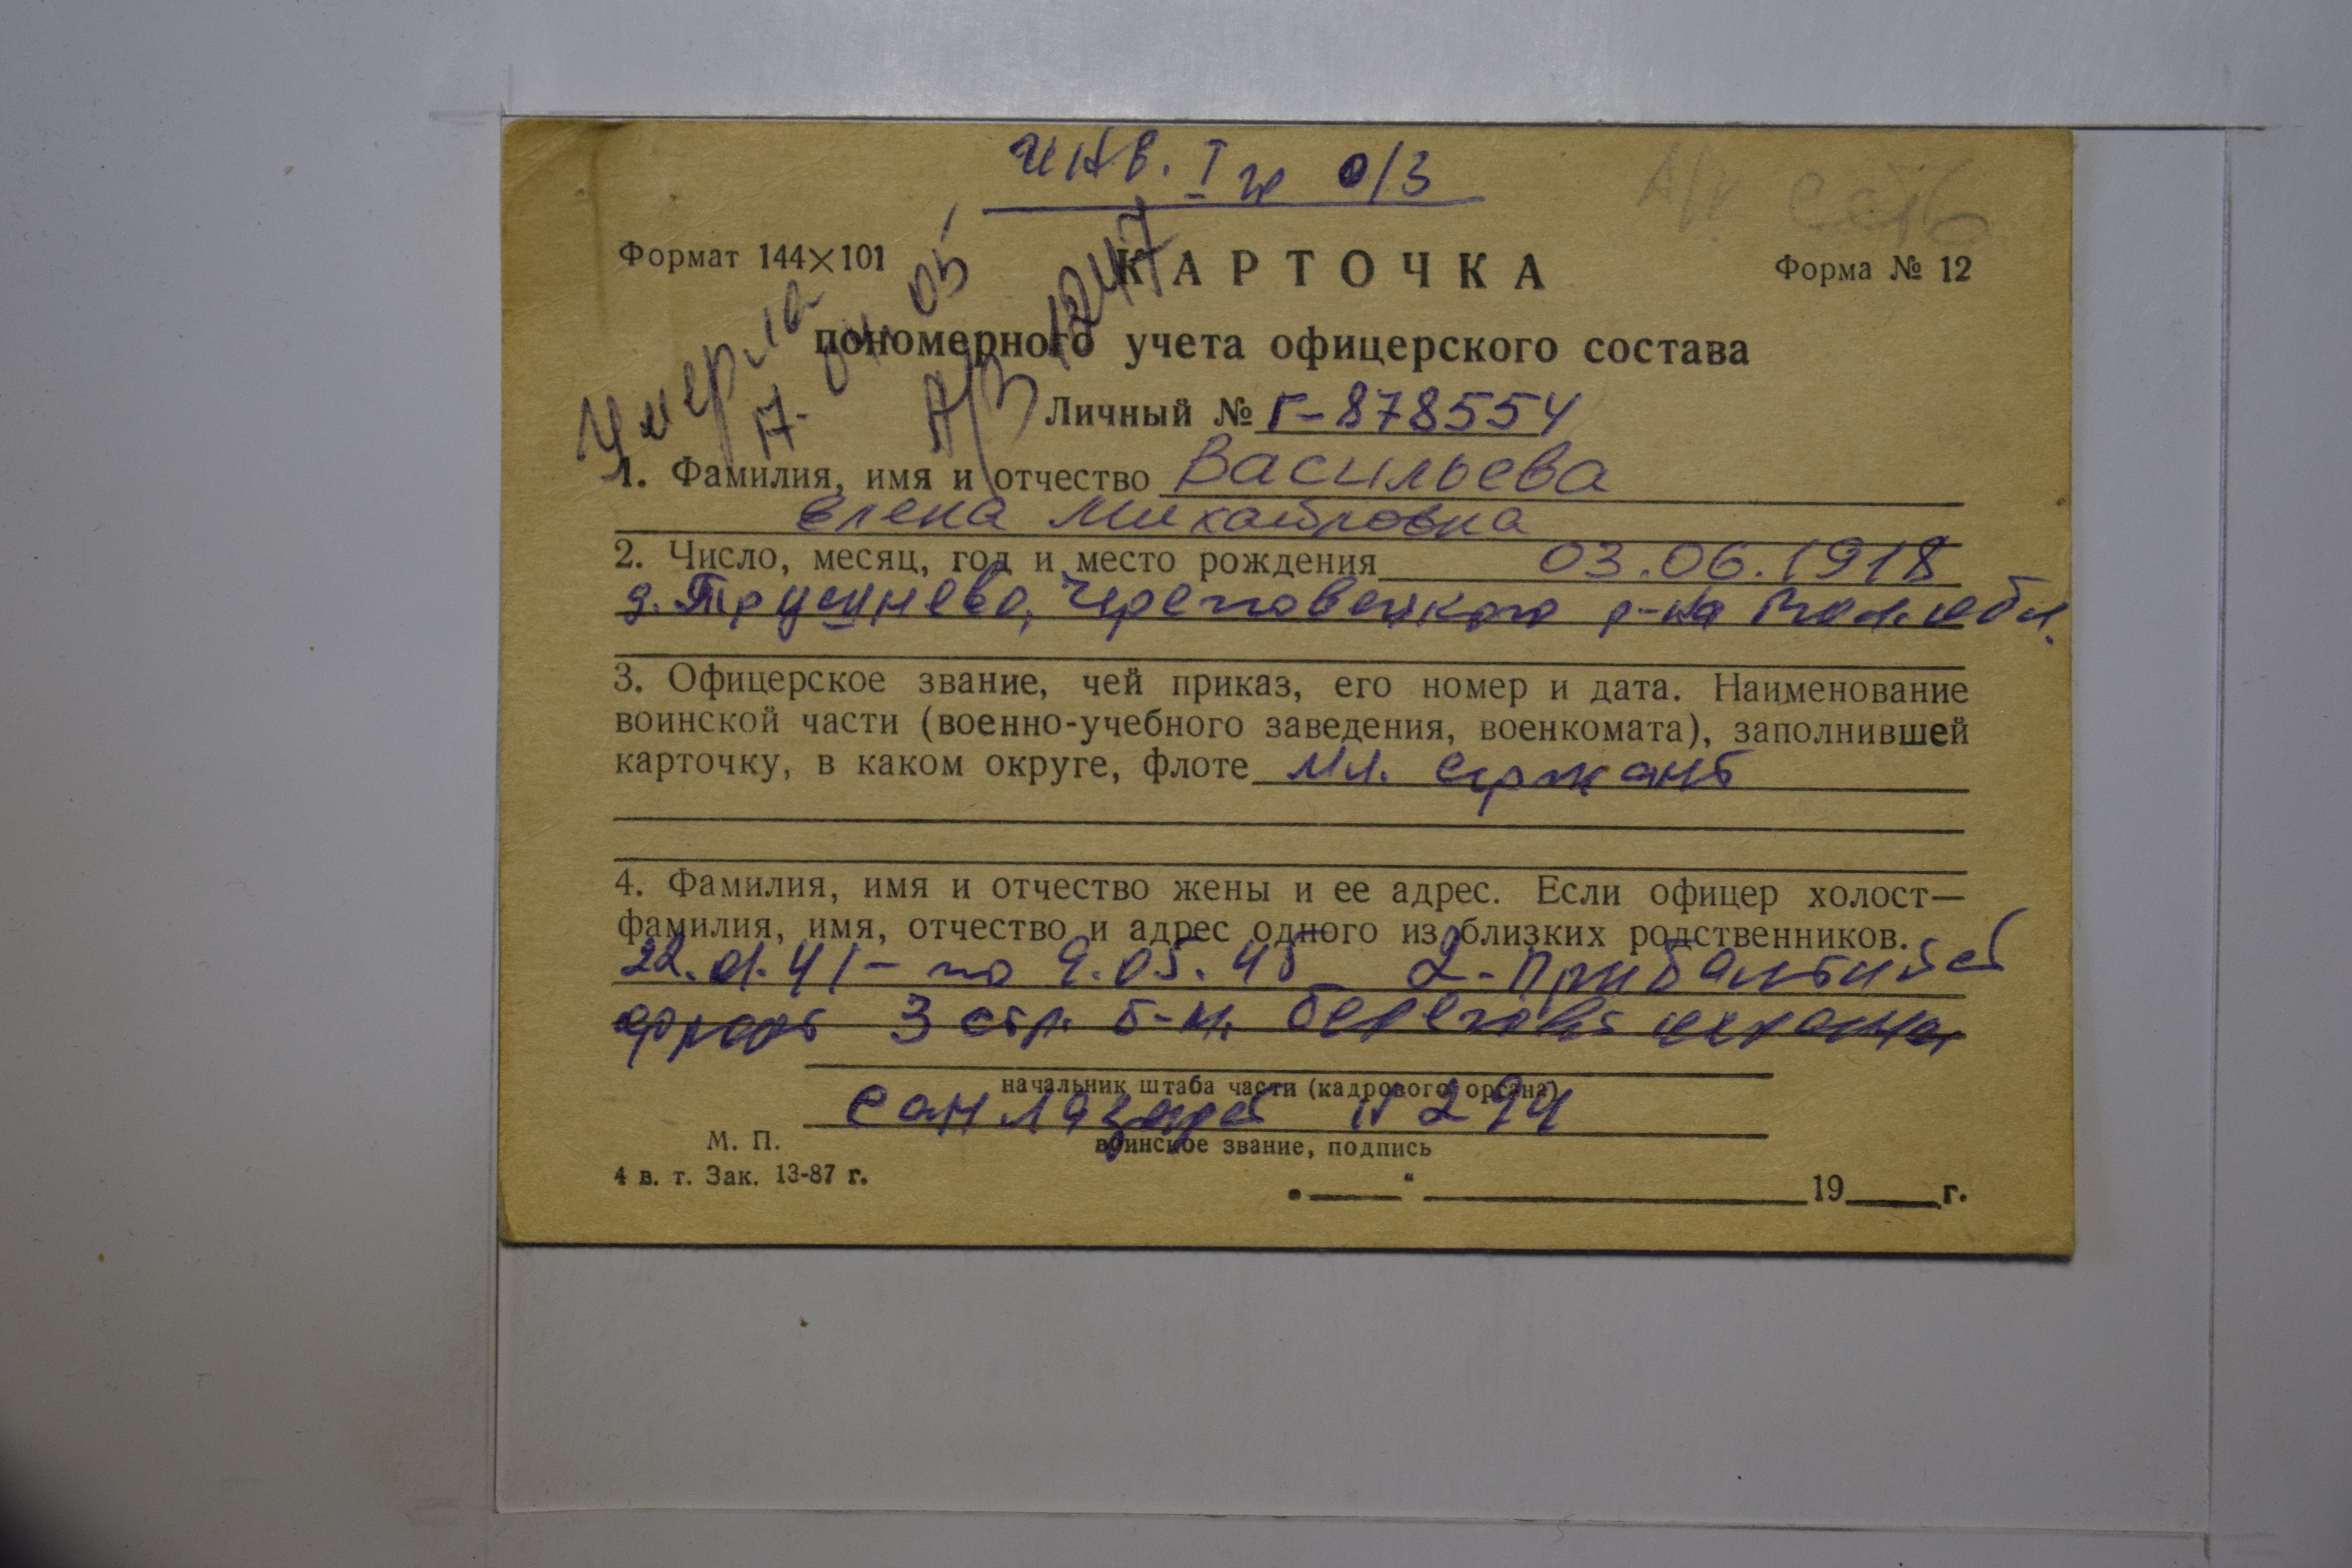 инв. I гр о/з
А/к есть
Формат 144×101
КАРТОЧКА
Форма № 12
пономерного учета офицерского состава
Умерла
17. 04. 05
А/З 10417
Личный № Г-878554
1. Фамилия, имя и отчество Васильева
Елена Михайловна
2. Число, месяц, год и место рождения 03.06.1918
д. Трушнево, Череповецкого р-на Вол. обл.
3. Офицерское звание, чей приказ, его номер и дата. Наименование
воинской части (военно-учебного заведения, военкомата), заполнившей
карточку, в каком округе, флоте мл. сержант
4. Фамилия, имя и отчество жены и ее адрес. Если офицер холост—
фамилия, имя, отчество и адрес одного из близких родственников.
22. 41 – по 9.05.45 2-Прибалтийс
фронт 3 стр. б-н. береговой охраны
начальник штаба части (кадрового органа)
сан лазарет № 294
М. П.
воинское звание, подпись
4 в. т. Зак. 13-87 г.
„ “ 19 г.